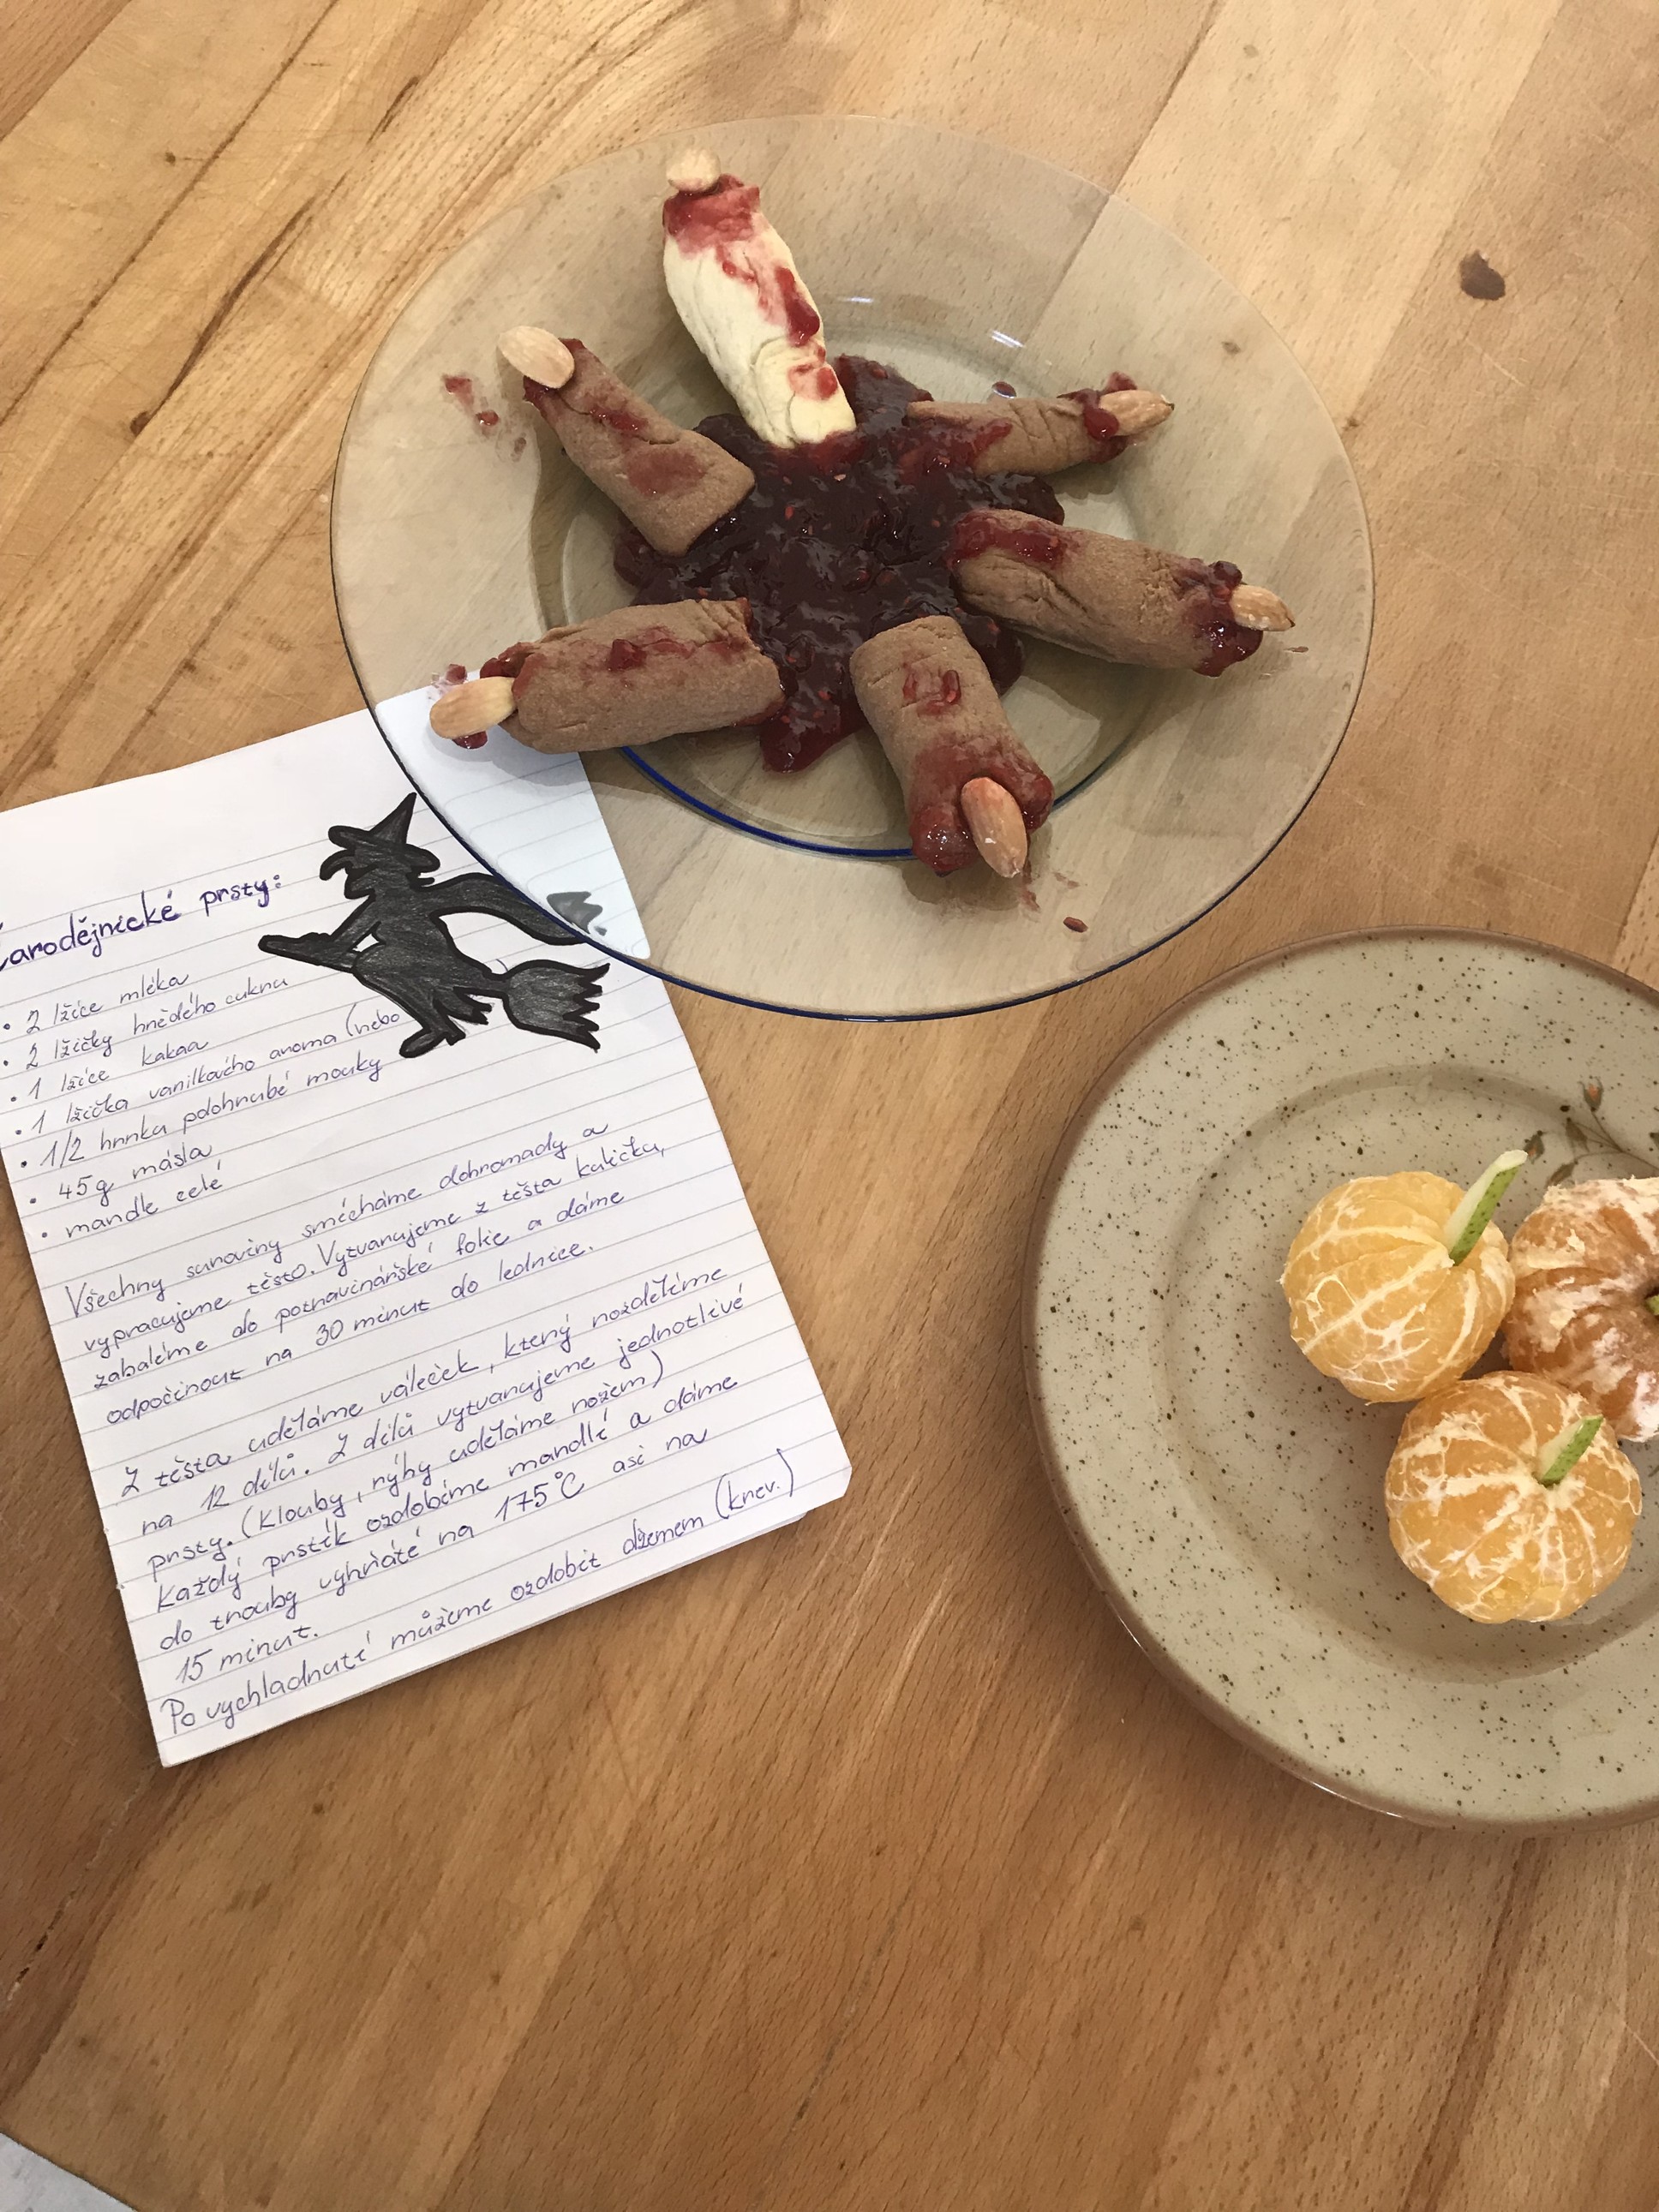 Čarodějnické prsty:
• 2 lžíce mléka
• 2 lžičky hnědého cukru
• 1 lžíce kakaa
• 1 lžička vanilkového aroma (nebo
• 1/2 hrnku polohrubé mouky
• 45g másla
• mandle celé
Všechny suroviny smícháme dohromady a
vypracujeme těsto. Vytvarujeme z těsta kuličku,
zabalíme do potravinářské folie a dáme
odpočinout na 30 minut do lednice.
Z těsta uděláme váleček, který rozdělíme
na 12 dílů. Z dílů vytvarujeme jednotlivé
prsty. (Klouby, rýhy uděláme nožem)
Každý prstík ozdobíme mandlí a dáme
do trouby vyhřáté na 175°C asi na
15 minut.
Po vychladnutí můžeme ozdobit džemem (krev.)